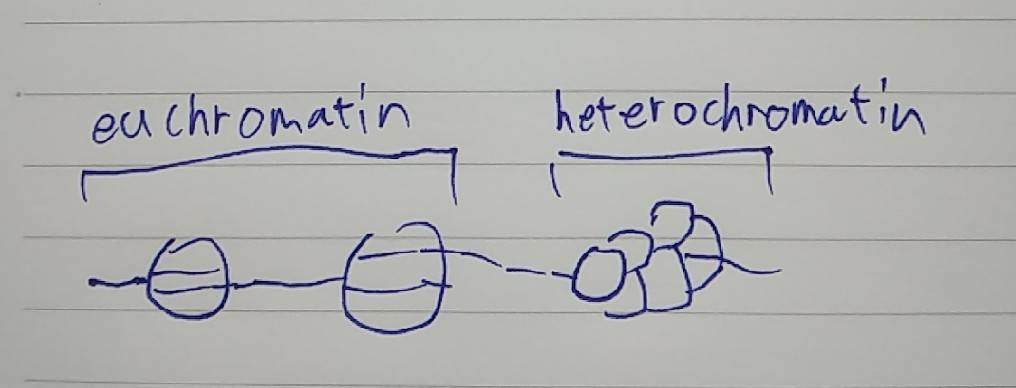 euchromatin heterochromatin